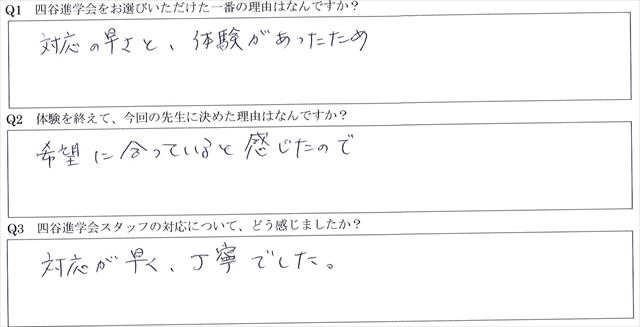 Q1 四谷進学会をお選びいただけた一番の理由はなんですか？
対応の早さと、体験があったため
Q2 体験を終えて、今回の先生に決めた理由はなんですか？
希望に合っていると感じたので
Q3 四谷進学会スタッフの対応について、どう感じましたか？
対応が早く、丁寧でした。